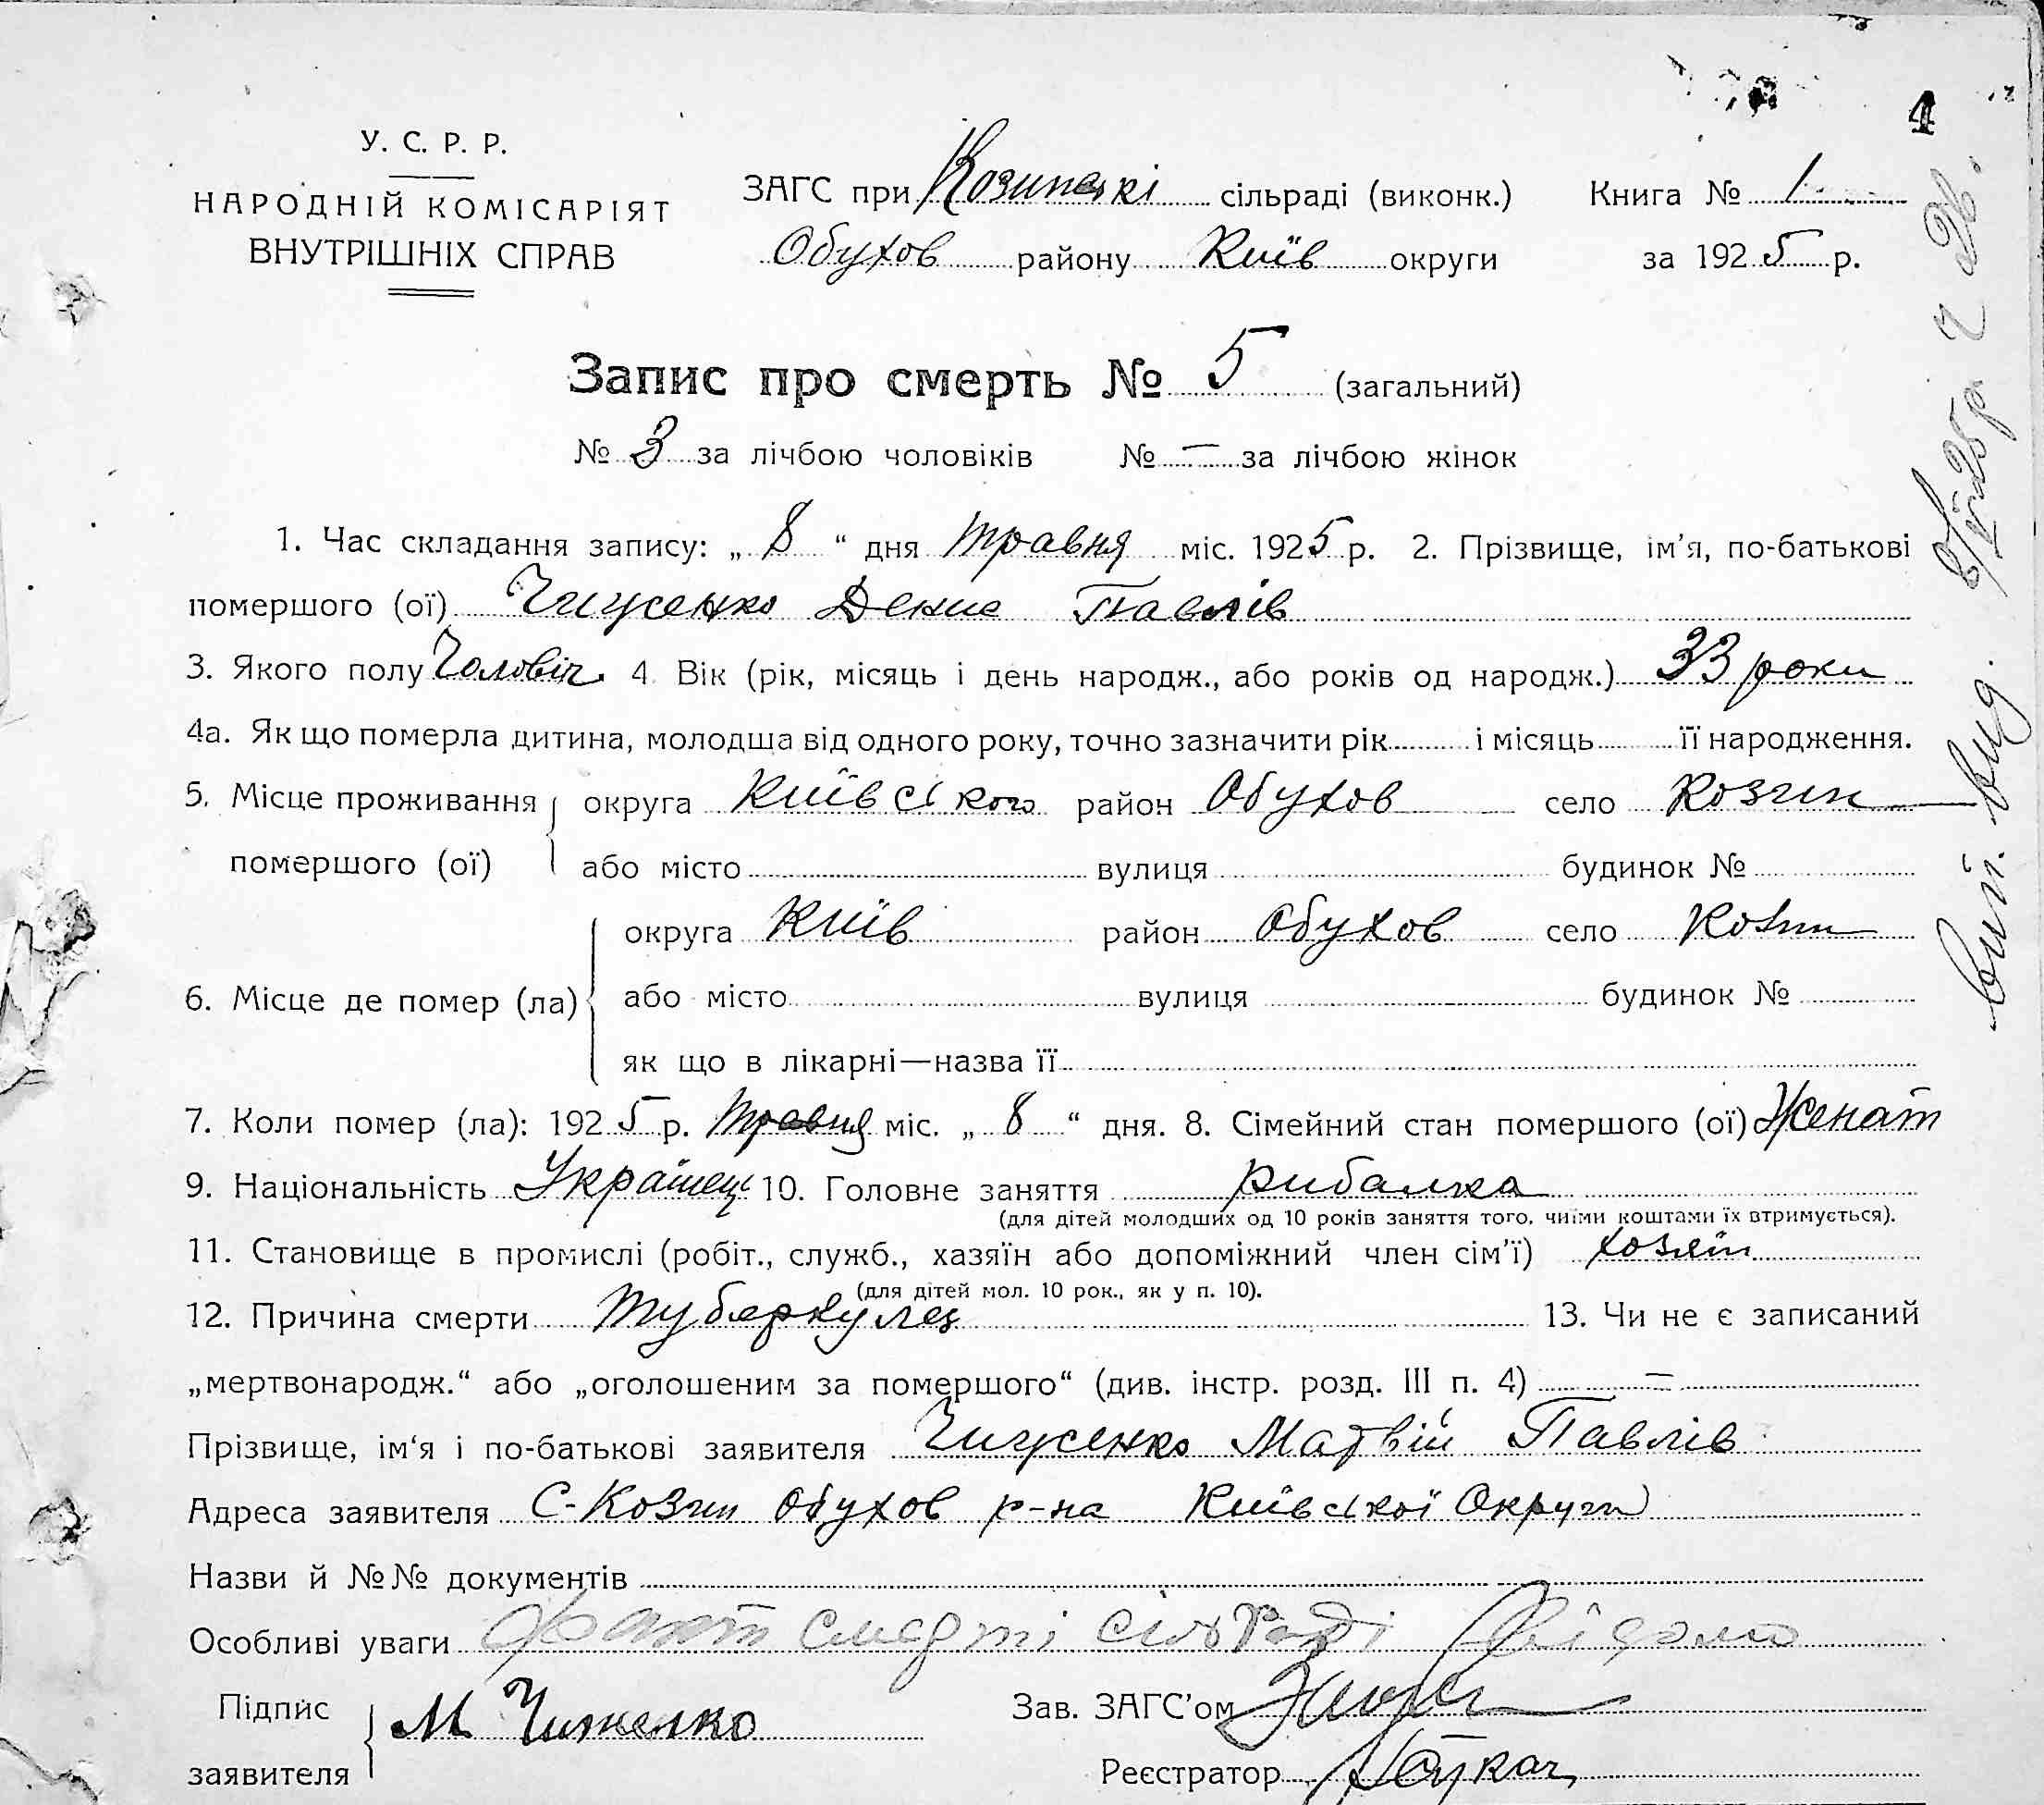 4
У. С. Р. Р.
НАРОДНІЙ КОМІСАРІЯТ
ВНУТРІШНІХ СПРАВ
ЗАГС при Козинські сільраді (виконк.) Книга № 1
Обухов району Київ округи за 1925 р.
Запис про смерть № 5 (загальний)
№ 3 за лічбою чоловіків № — за лічбою жінок
1. Час складання запису: „ 8 “ дня травня міс. 1925 р. 2. Прізвище, ім'я, по-батькові
помершого (ої) Чиженко Денис Павлів
3. Якого полу Чоловіч. 4 Вік (рік, місяць і день народж., або років од народж.) 33 роки
4а. Як що померла дитина, молодша від одного року, точно зазначити рік і місяць її народження.
5. Місце проживання округа Київського район Обухов село Козин
помершого (ої) або місто вулиця будинок №
округа Київ район Обухов село Козин
6. Місце де помер (ла) або місто вулиця будинок №
як що в лікарні—назва її
7. Коли помер (ла): 1925 р. травня міс. „ 8 “ дня. 8. Сімейний стан помершого (ої) Женат
9. Національність Українець 10. Головне заняття рибалка
(для дітей молодших од 10 років заняття того, чиїми коштами їх втримується).
11. Становище в промислі (робіт., служб., хазяїн або допоміжний член сім'ї) хозяїн
(для дітей мол. 10 рок., як у п. 10).
12. Причина смерти туберкулез 13. Чи не є записаний
„мертвонародж.“ або „оголошеним за помершого“ (див. інстр. розд. III п. 4) —
Прізвище, ім'я і по-батькові заявителя Чиженко Матвій Павлів
Адреса заявителя С-Козин Обухов р-на Київської Округи
Назви й №№ документів
Особливі уваги Факт смерті сільраді Відомо
Підпис М Чиженко Зав. ЗАГС'ом
заявителя Реєстратор
вип. вид.